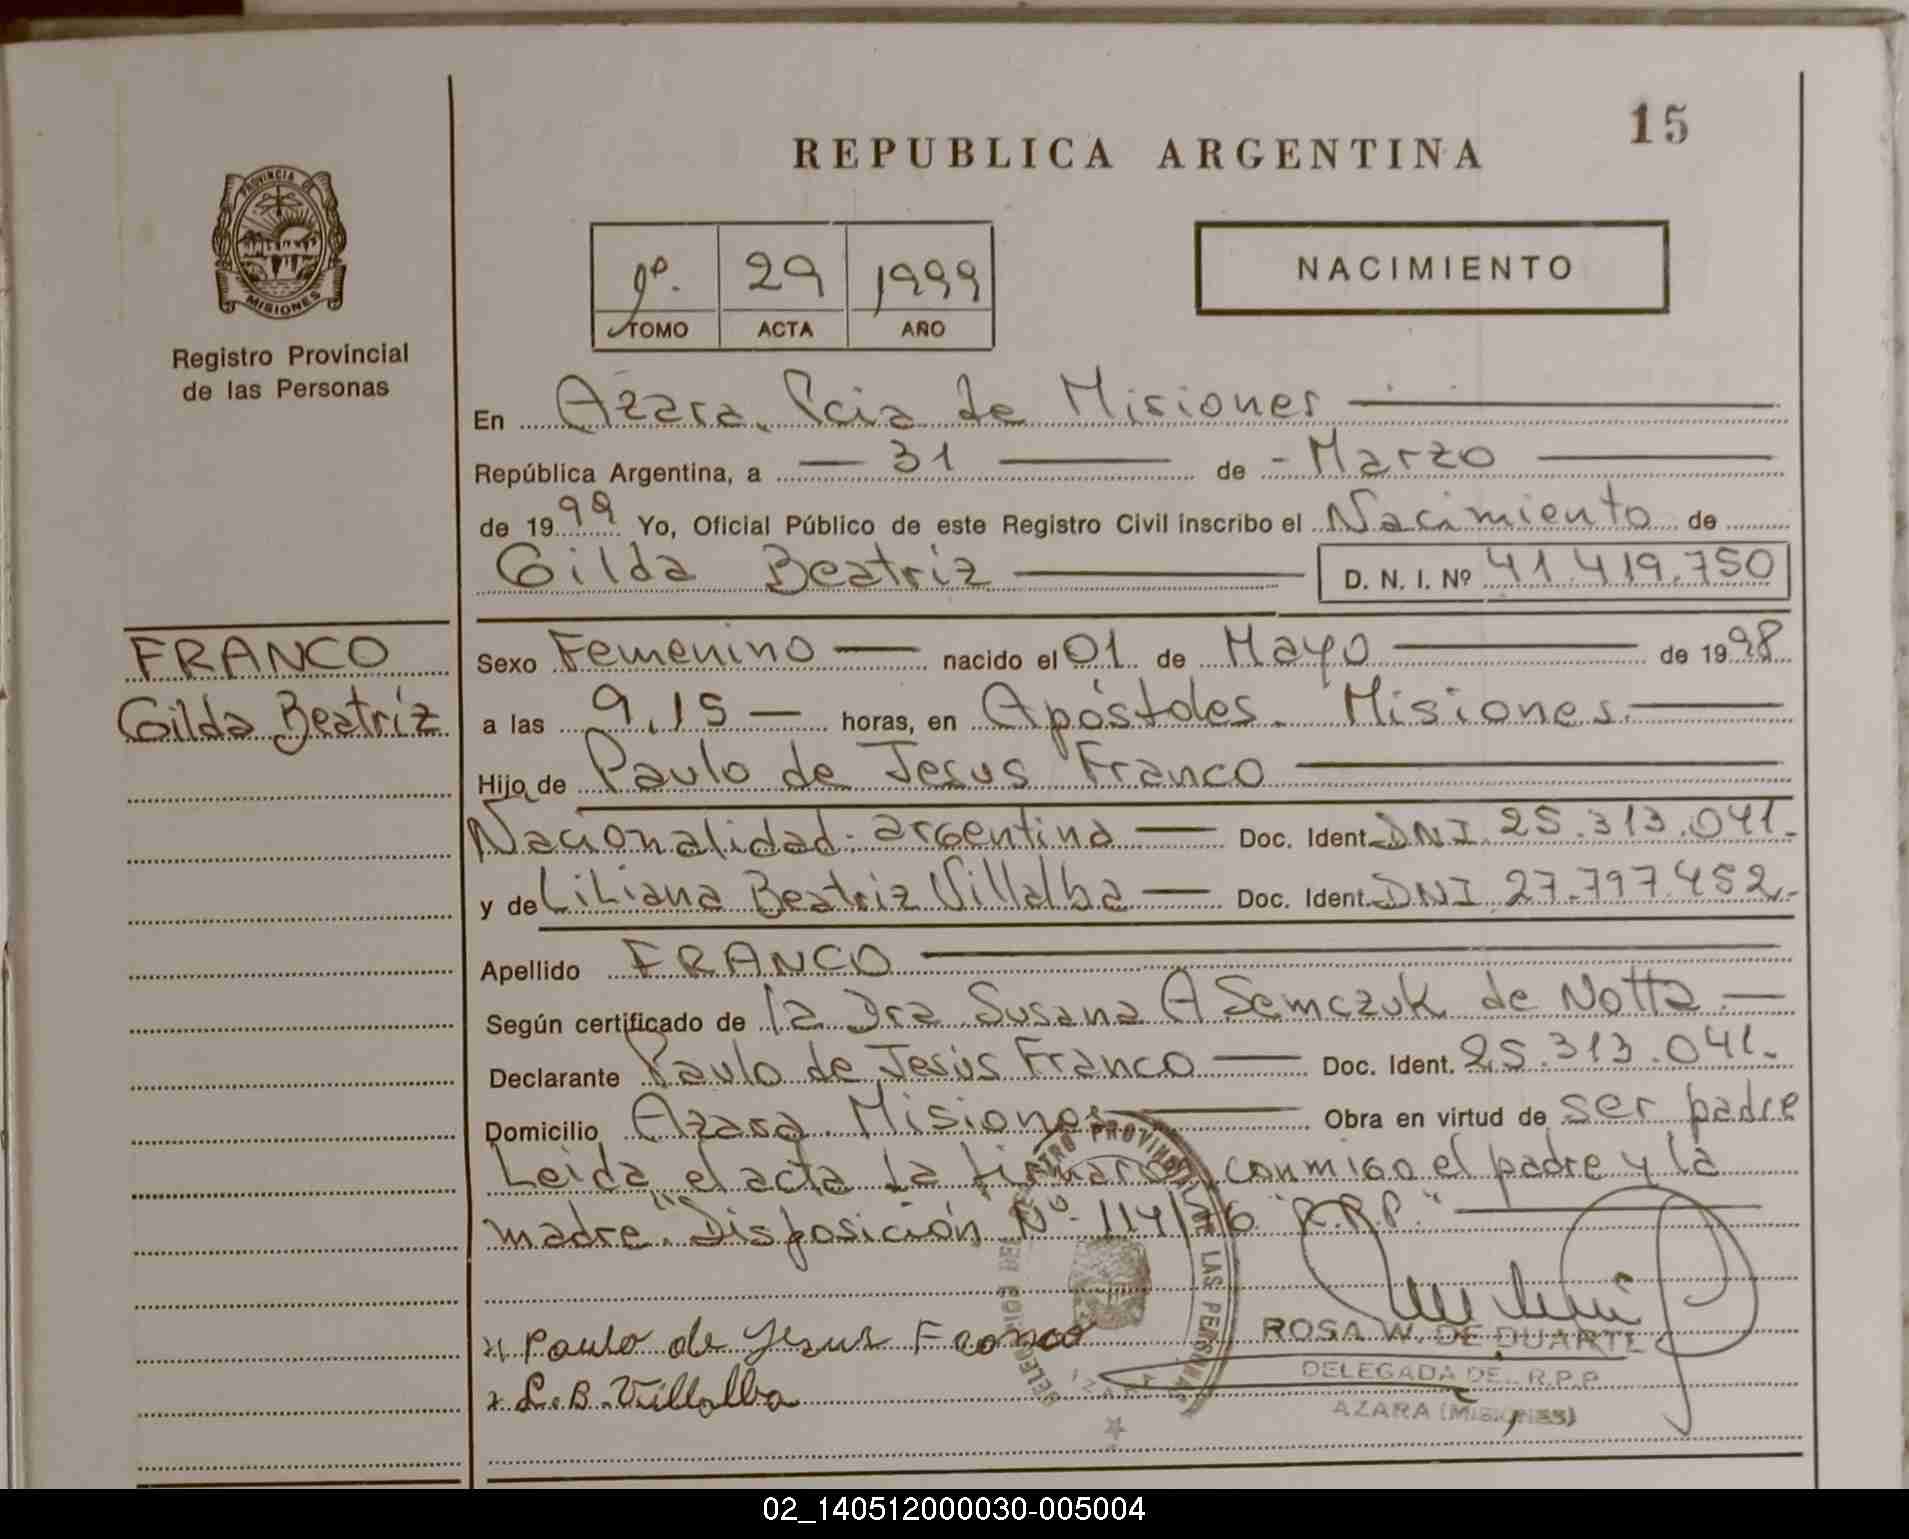 15
REPUBLICA ARGENTINA
PROVINCIA DE
MISIONES
Registro Provincial
de las Personas
1º. 29 1999
TOMO ACTA AÑO
NACIMIENTO
En Azara, Pcia de Misiones
República Argentina, a 31 de Marzo
de 1999 Yo, Oficial Público de este Registro Civil inscribo el Nacimiento de
Gilda Beatriz D. N. I. Nº 41.419.750
FRANCO
Gilda Beatriz
Sexo Femenino nacido el 01 de Mayo de 1998
a las 9,15 horas, en Apóstoles. Misiones
Hija de Paulo de Jesus Franco
Nacionalidad. argentina Doc. Ident. DNI 25.313.041.
y de Liliana Beatriz Villalba Doc. Ident. DNI 27.797.452.
Apellido FRANCO
Según certificado de la Dra Susana A Semczuk de Notta
Declarante Paulo de Jesús Franco Doc. Ident. 25.313.041.
Domicilio Azara. Misiones Obra en virtud de ser padre
Leida el acta la firmaron conmigo el padre y la
madre. "Disposición Nº 114/76 R.P.P."
PROVINCIAL DE LAS PERSONAS
x Paulo de Jesus Franco
x L.B. Villalba
ROSA W. DE DUARTE
DELEGADA DEL R.P.P
AZARA (MISIONES)
02_140512000030-005004